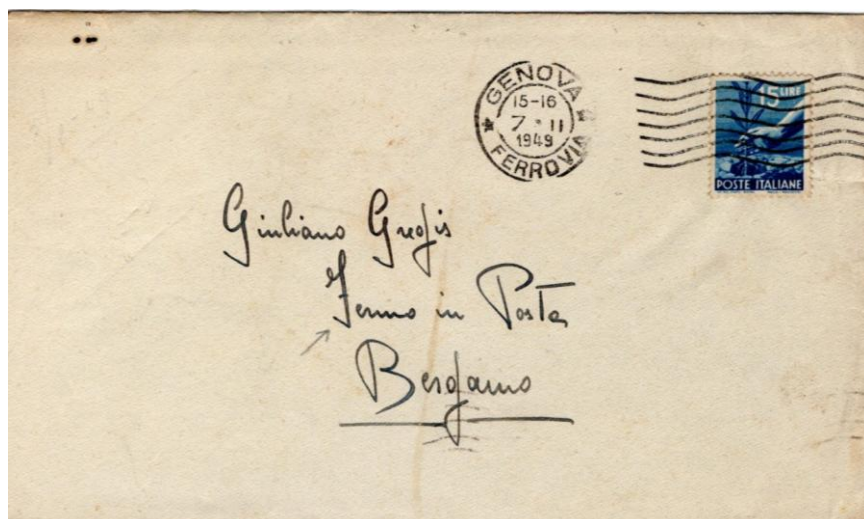 GENOVA
15-16
7 - 11
1949
FERROVIA
15 LIRE
POSTE ITALIANE
Giuliano Gregis
Fermo in Posta
Bergamo